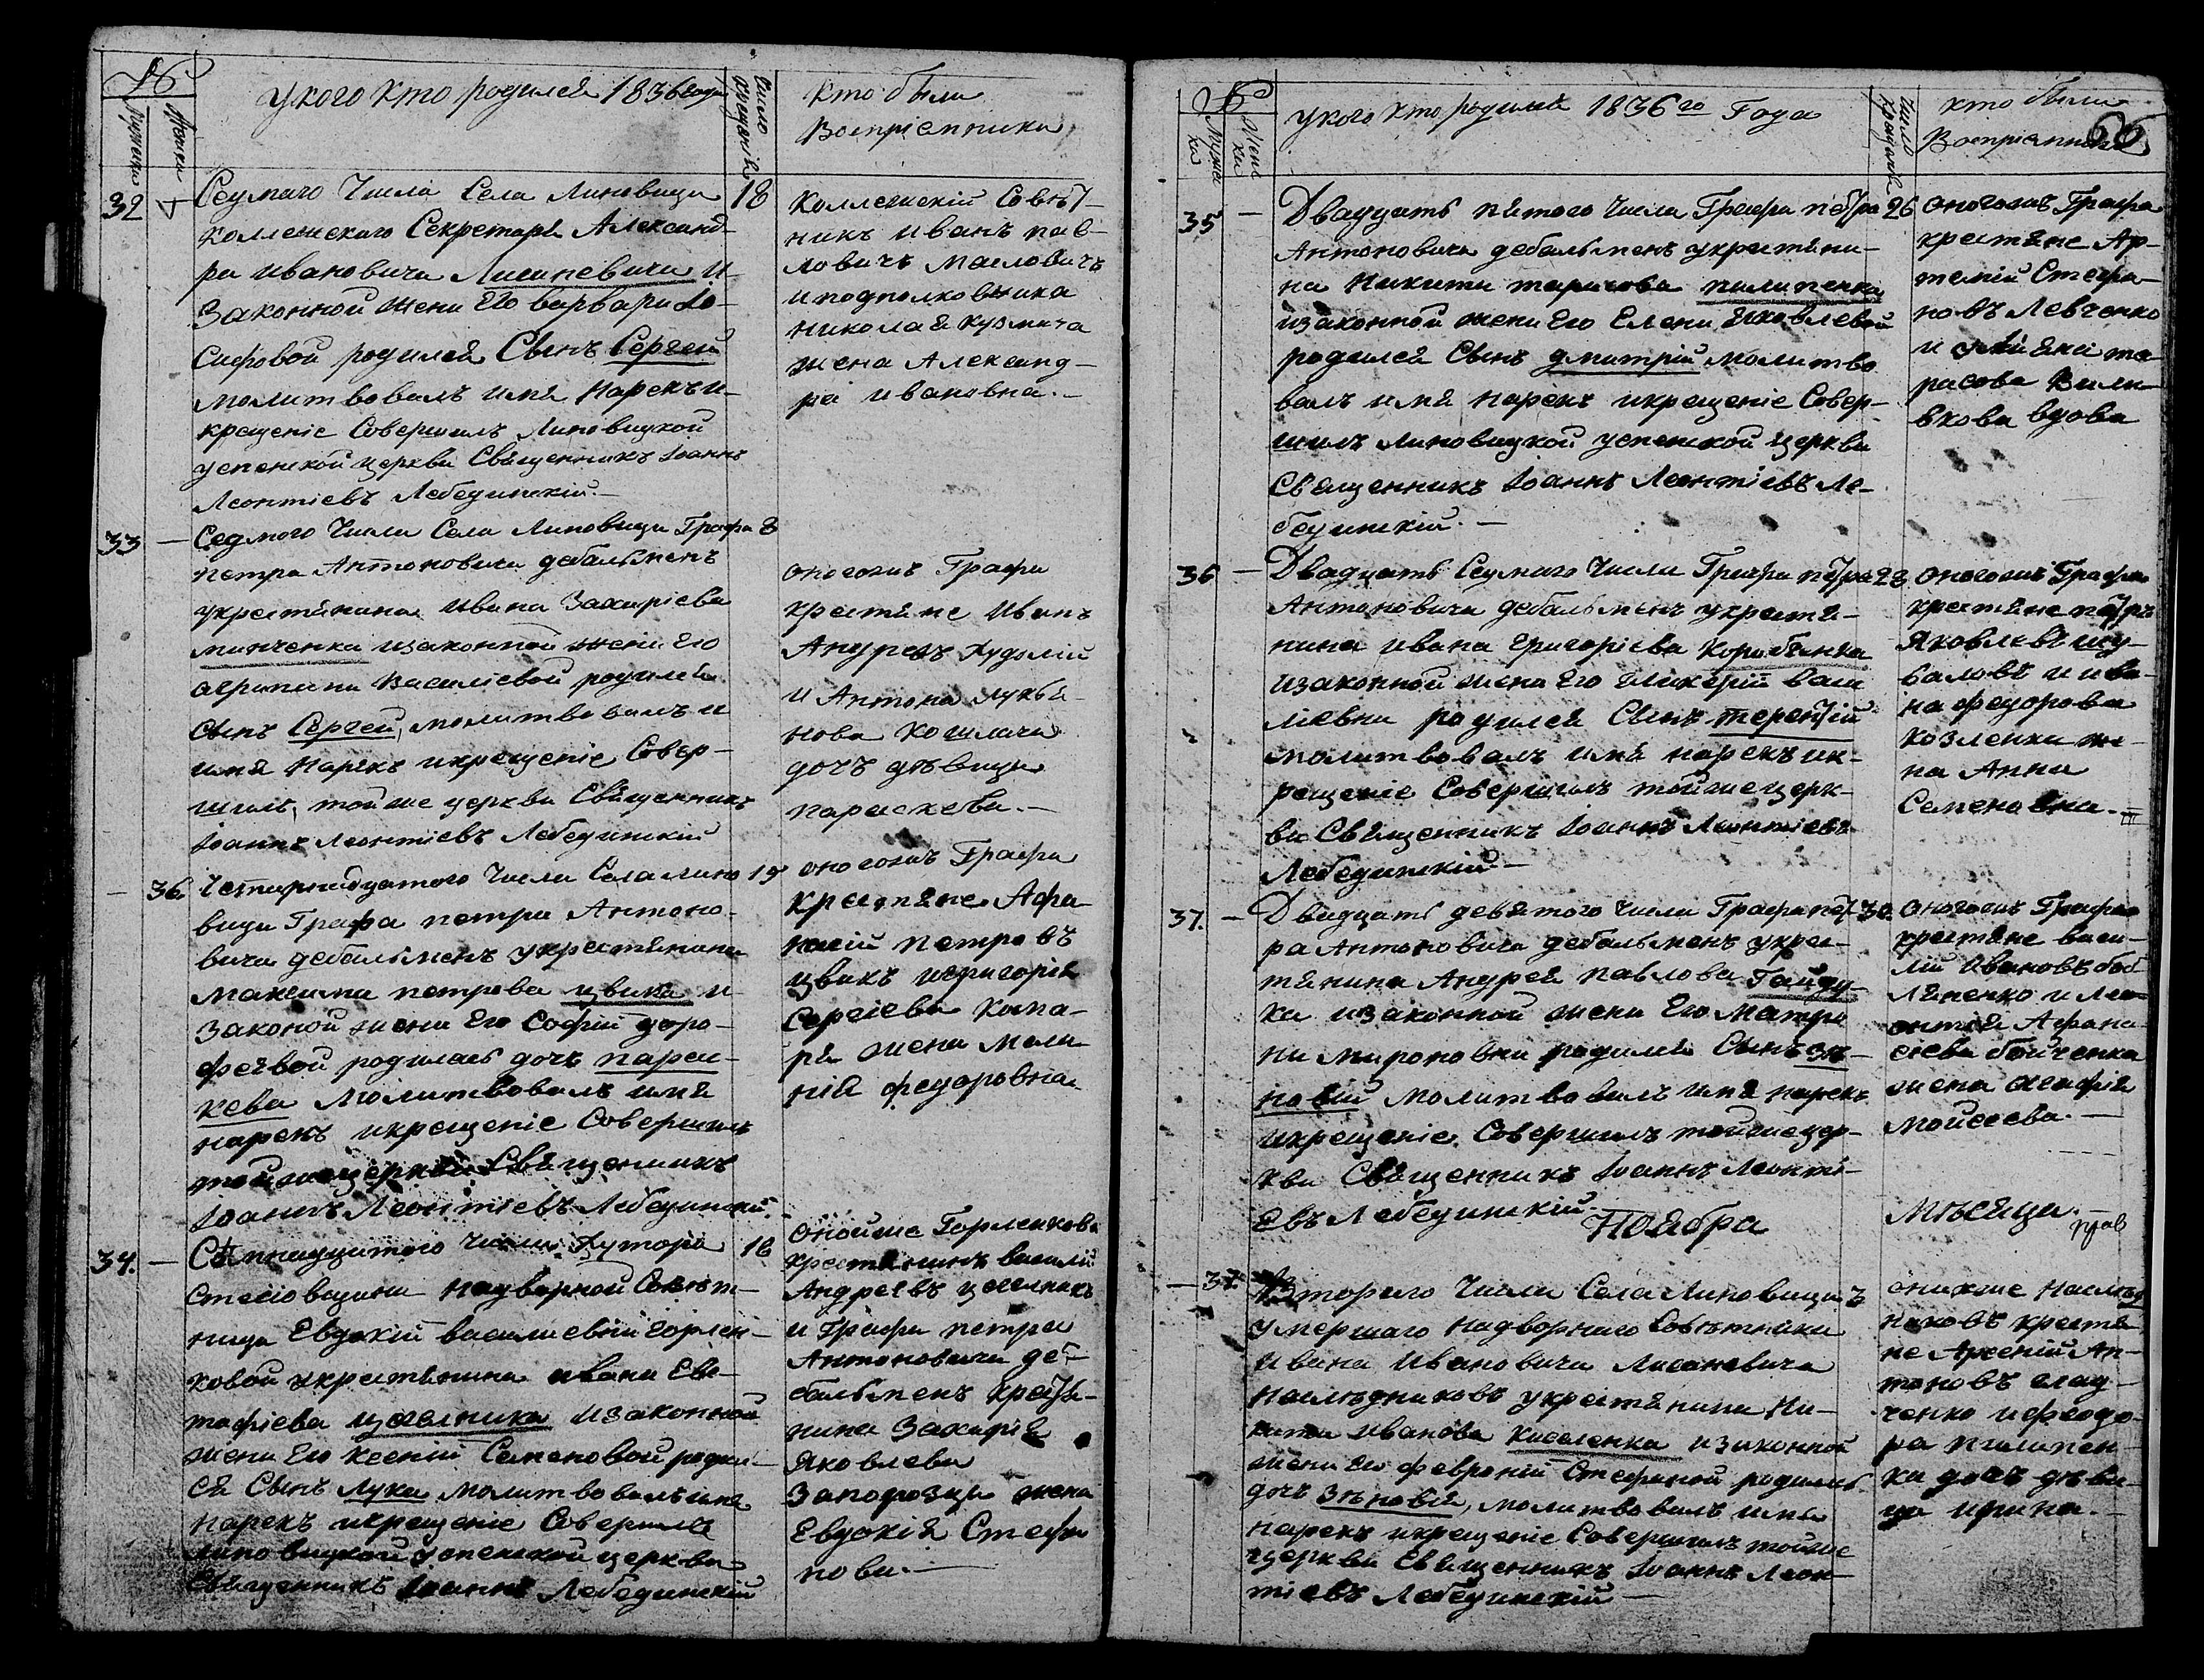 №
Мужеска
Женска
у кого кто родился 1836 года
Число крещенія
кто были
Воспріемники
32
Сеумаго Числа Села Линовици
18
коллежскаго Секретаря Александ-
ра ивановича Лисаневича и
Законной жени Его варвари Іо-
Сифовой родился Сынъ Сергей
молитвовалъ имя Нарекъ и-
крещеніе Совершилъ Линовицкой
успенской церкви Священникъ Іоаннъ
Леонтіевъ Лебединскій.—
Коллежскій Совѣт-
никъ иванъ пав-
ловичъ масловичъ
и подполковника
николая кузмича
жена Александ-
ра ивановна.—
33
Седмого Числа Села Линовици Графа
8
петра Антоновича дебальменъ
укрестянина ивана Захаріева
минченка изаконной жени Его
агрипини василіевой родился
сынъ Сергей, молитвовалъ и
имя Нарекъ икрещеніе Совер-
шилъ, тойже церкви Священникъ
Іоаннъ Леонтіевъ Лебединскій
оногожъ Графа
крестяне Иванъ
Андреевъ Худолій
и Антона лукья-
нова
дочъ дѣвица
параскева.—
36
Четирнадцатого Числа Села лино
19
вици Графа петра Антоно-
вича дебальменъ укрестянина
максима петрова цвика и
Законой жени Его Софіи доро-
феевой родилась дочъ парас-
кева молитвовалъ имя
нарекъ икрещеніе Совершилъ
тойжецеркви Священникъ
Іоаннъ Леонтіевъ Лебединскій.
оногожъ Графа
Крестяне Афа-
насій петровъ
цвикъ игригорія
Сергіева кома-
ра жена мела
нія федоровна
34.
Сѣмнадцатого Числа Хутора
18
Стасовщини надворной Совѣт-
ници Евдокіи василиевни Горлен-
ковой укрестянина ивана Евс-
тафіева изаконной
жени Его ксеніи Семеновой роди-
ся Сынъ Лука молитвовалъ имя
нарекъ икрещеніе Совершилъ
линовицкой успенской церкви
Священникъ Іоаннъ Лебединскій
онойже Горленковой
крестянинъ василій
Андреевъ
и Графа петра
Антоновича де-
бальменъ крестя-
нина Захарія
Яковлева
Запорозца жена
Евдокія Стефа
нова.—
№
Мужес
ка
Женс
ка
у кого кто родился 1836го Года
Число Крещенія
кто были
Воспріемники
66
35
Двадцать пятого Числа Графа петра
26
Антоновича дебальменъ укрестяни-
на Никити тарасова пилипенка
изаконной жени Его Елени Яковлевой
родился Сынъ дмитрій молитво
валъ имя нарекъ икрещеніе Совер-
шилъ линовицкой успенской церкви
Священникъ Іоаннъ Леонтіевъ Ле-
бединскій.—
оногожъ Графа
крестяне Ар-
темій Стефа-
новъ Левченко
и уліяна та-
расова
вкова вдова
36
Двадцать Сеумаго Числа Графа петра
28
Антоновича дебальменъ укрестя-
нина ивана Григоріева
изаконной жени Его гликеріи васи
ліевни родился Сынъ терентій
молитвовалъ имя нарекъ ик-
рещеніе Совершилъ тойжецерк-
ви Священникъ Іоаннъ Леонтіевъ
Лебединскій—
оногожъ Графа
крестяне петръ
Яковлевъ шу-
валовъ и ива-
на федорова
козленка же-
на Анна
Семеновна.—
37.
Двадцать девятого Числа Графа пет
30
ра Антоновича дебальменъ укрес-
тянина Андрея павлова Гайду-
ка изаконной жени Его матро
ни мироновни родился Сынъ зѣ-
новій молитвовалъ имя нарекъ
икрещеніе Совершилъ тойжецер-
кви Священникъ Іоаннъ Леонті-
Евъ Лебединскій.
оногожъ Графа
крестяне васи-
лій ивановъ
и Лео
онтія Афана-
сіева бойченка
жена агафія
мойсеева.—
Ноября
Мѣсяца.—
37.
Второго Числа Села Линовици
3
умершаго надворнаго Совѣтника
Ивана Ивановича Лисаневича
наслѣдниковъ укрестянина Ни-
кити иванова Киселенка изаконной
жени Его февроніи Стефановой родилась
дочъ Зѣновія, молитвовалъ имя
нарекъ икрещеніе Совершилъ тойже
церкви Священникъ Іоаннъ Леон-
тіевъ Лебединскій—
онихже наслѣд
никовъ крестя
не Арсеній Ан-
тоновъ
ченко ифеодо-
ра пилипен-
ка дочъ дѣви-
ца ирина.—